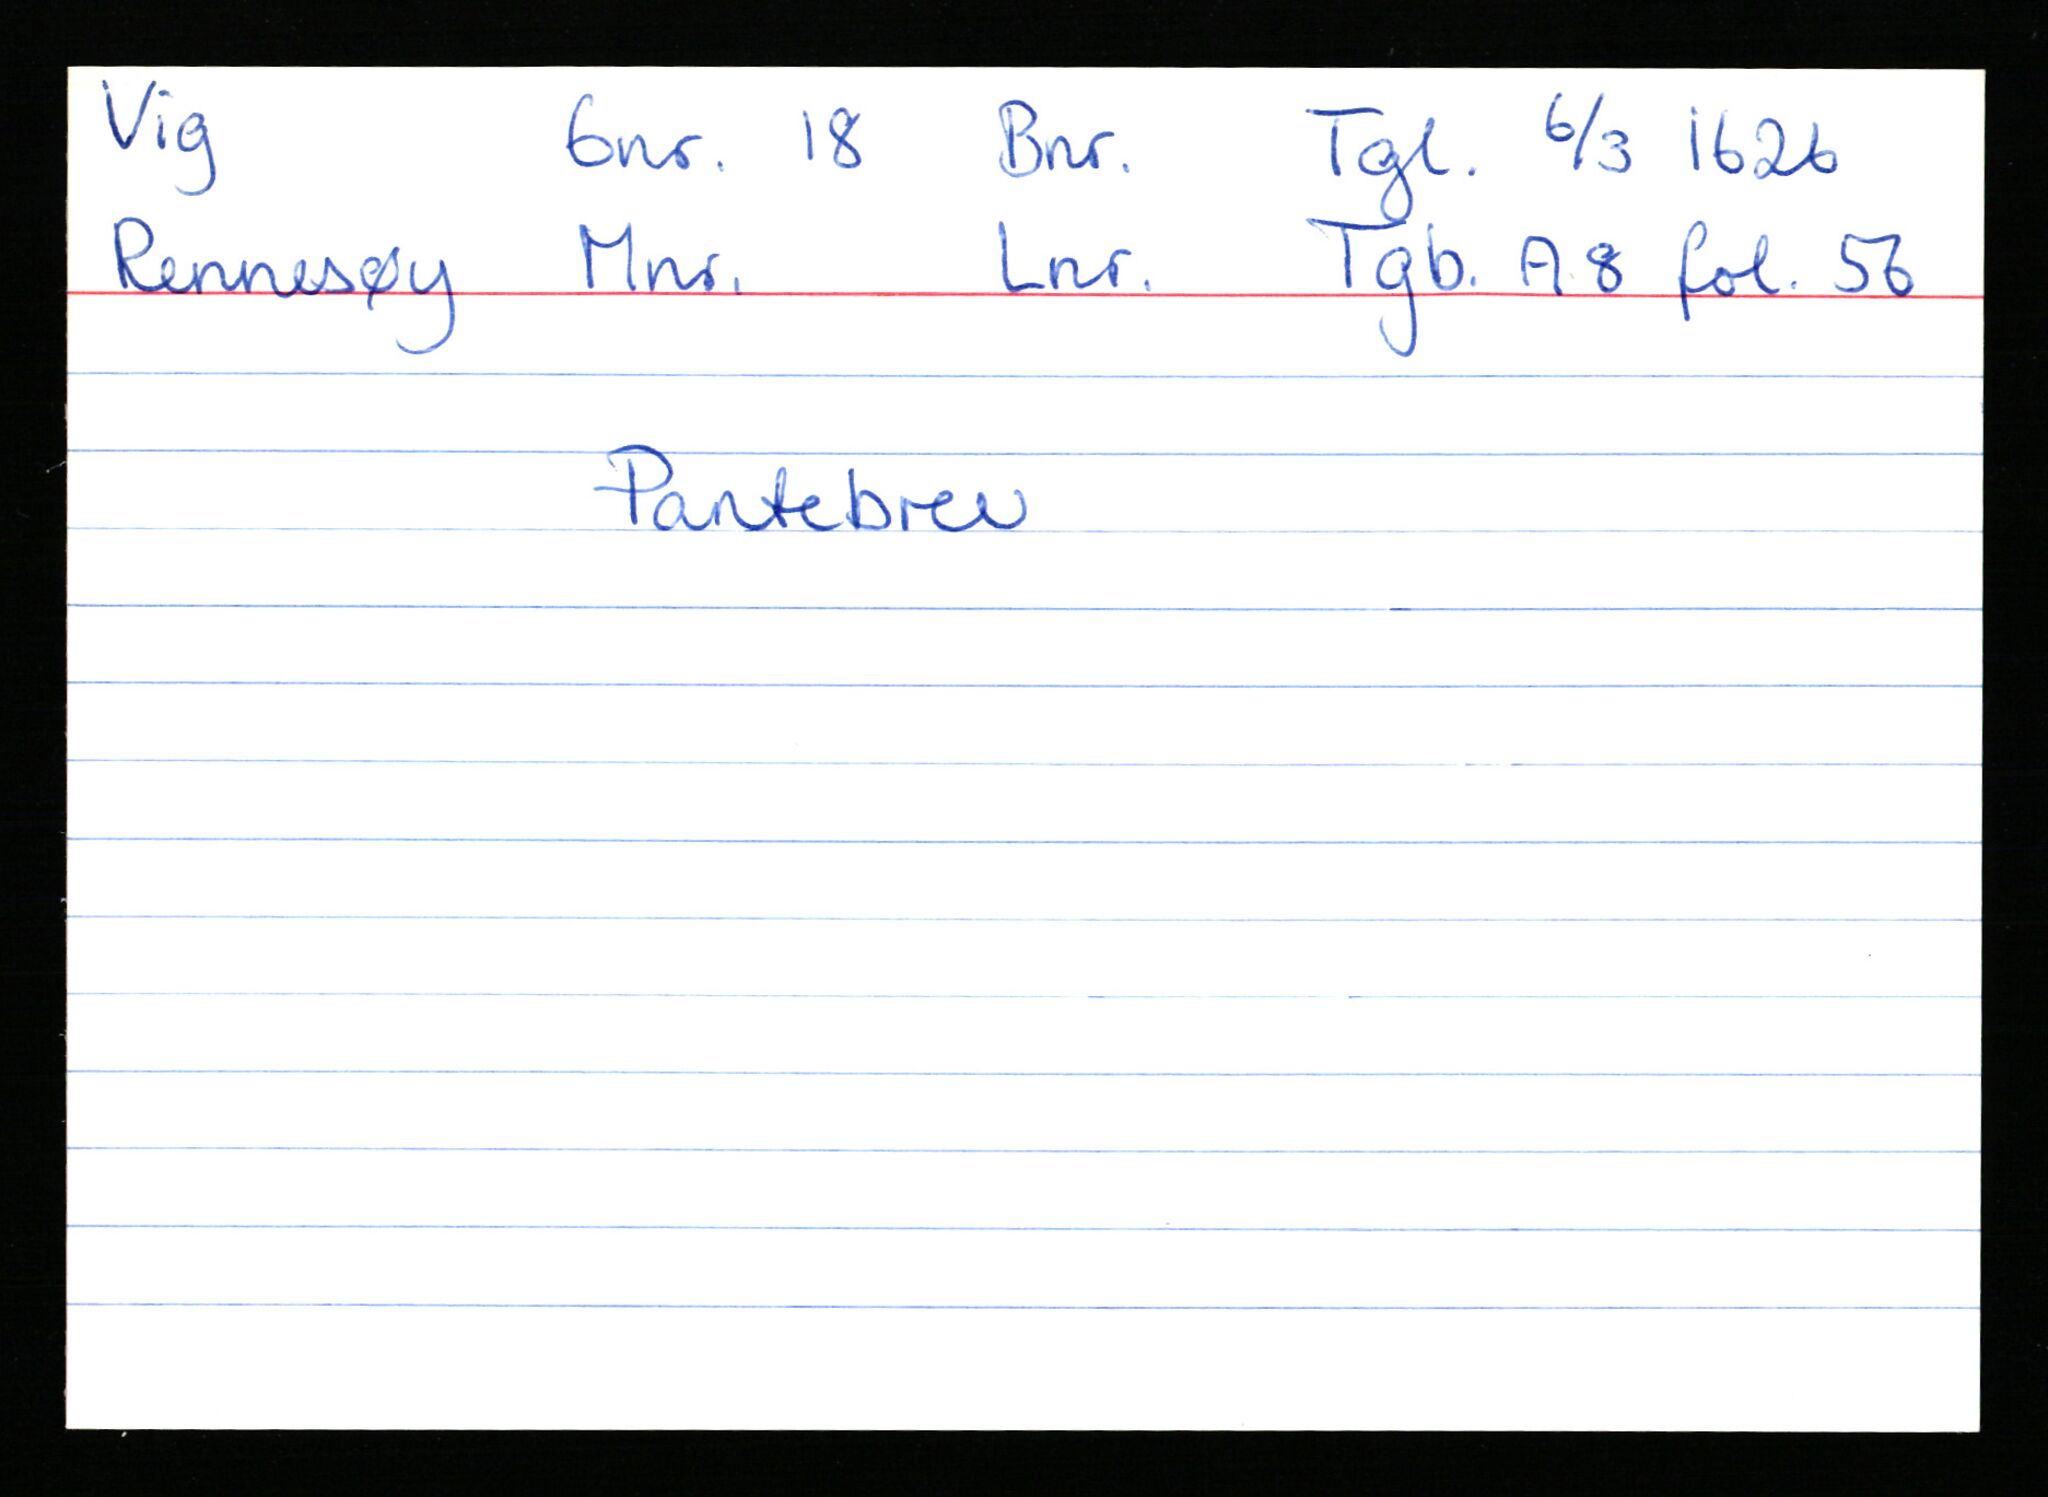 Vig Gnr. 18 Bnr. Tgl. 6/3 1626
Rennesøy Mnr. Lnr. Tgb. A8 fol. 56
Pantebrev